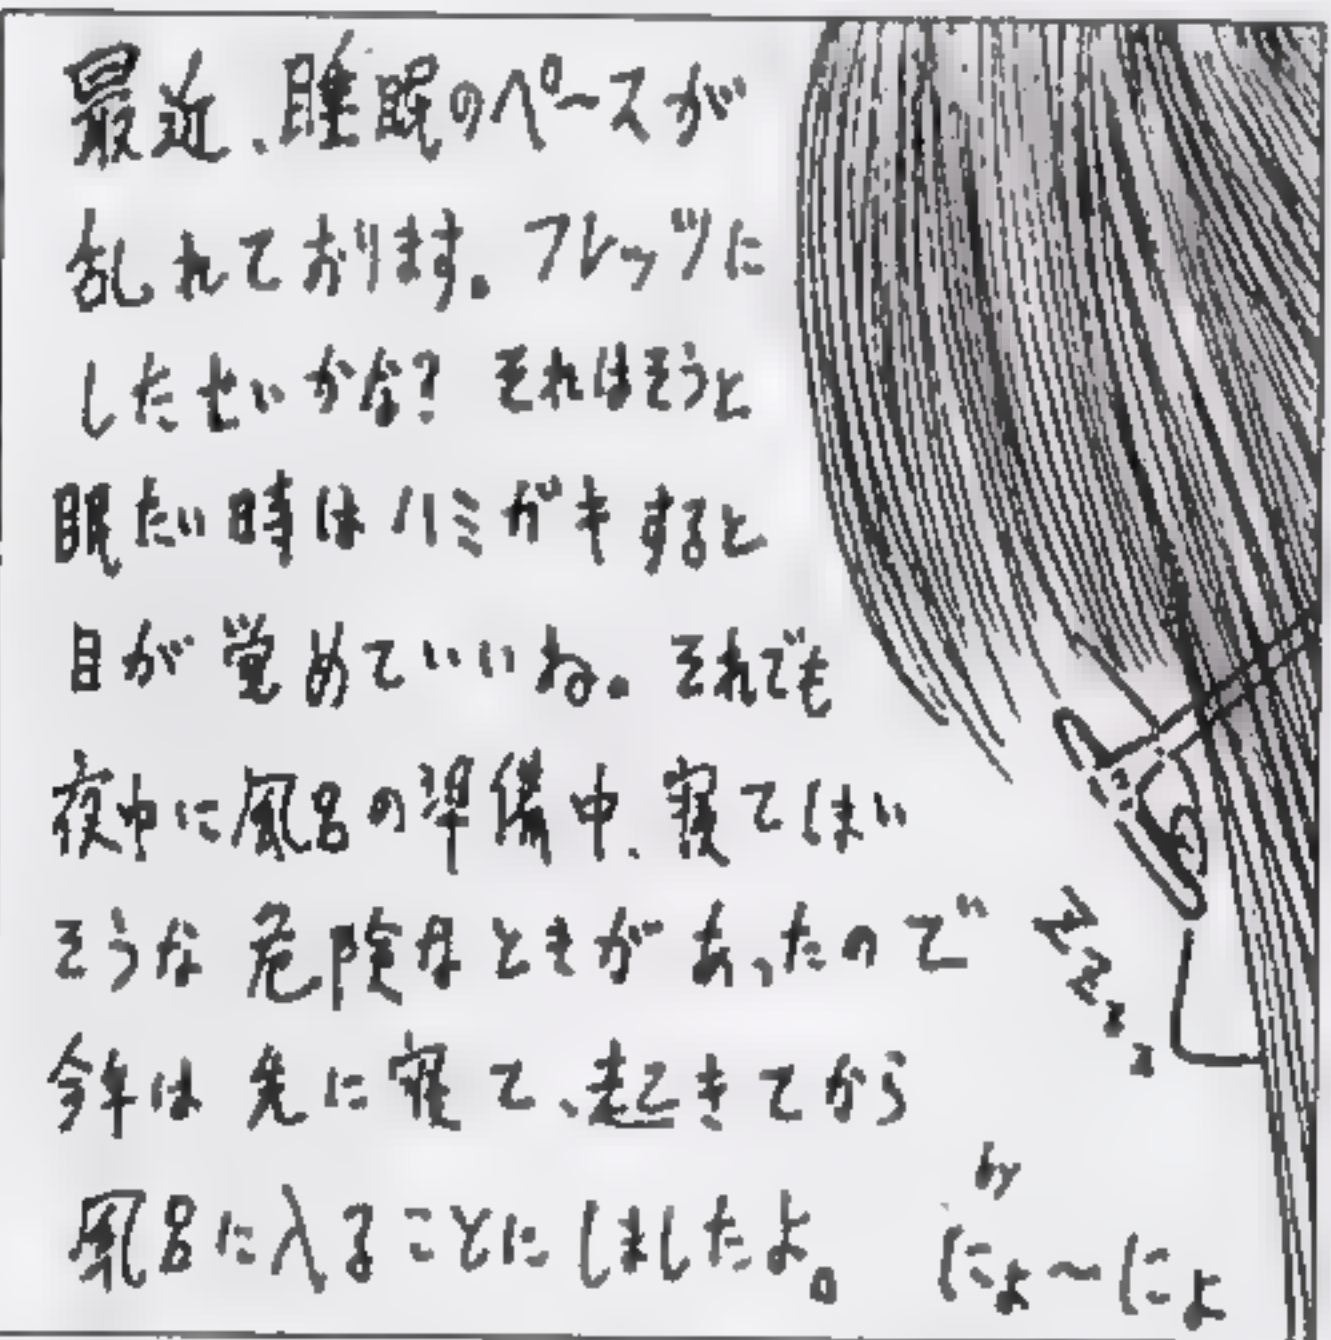 最近、睡眠のペースが
乱れております。フレッツに
したせいかな? それはそうと
眠たい時はハミガキすると
目が覚めていいね。それでも
夜中に風呂の準備中、寝てしまい
そうな危険なときがあったので
今年は先に寝て、起きてから
風呂に入ることにしましたよ。
by
にょ〜にょ
ZZzz